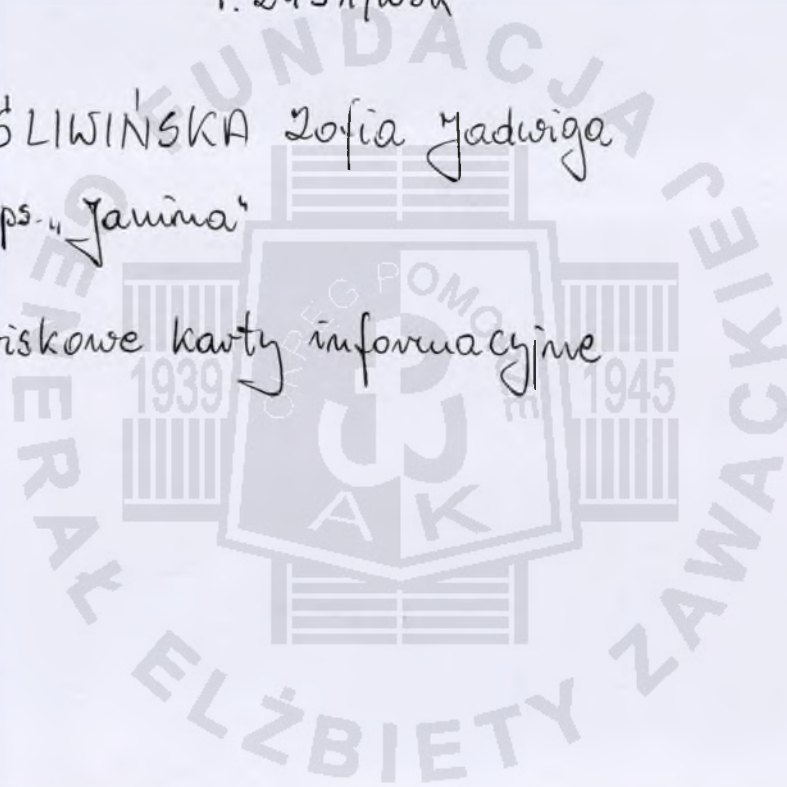 ŚLIWIŃSKA Zofia Jadwiga
ps. „Janina"
iskowe karty informacyjne
FUNDACJA GENERAŁ ELŻBIETY ZAWACKIEJ
OKRĘG POMORZE
1939
1945
A K